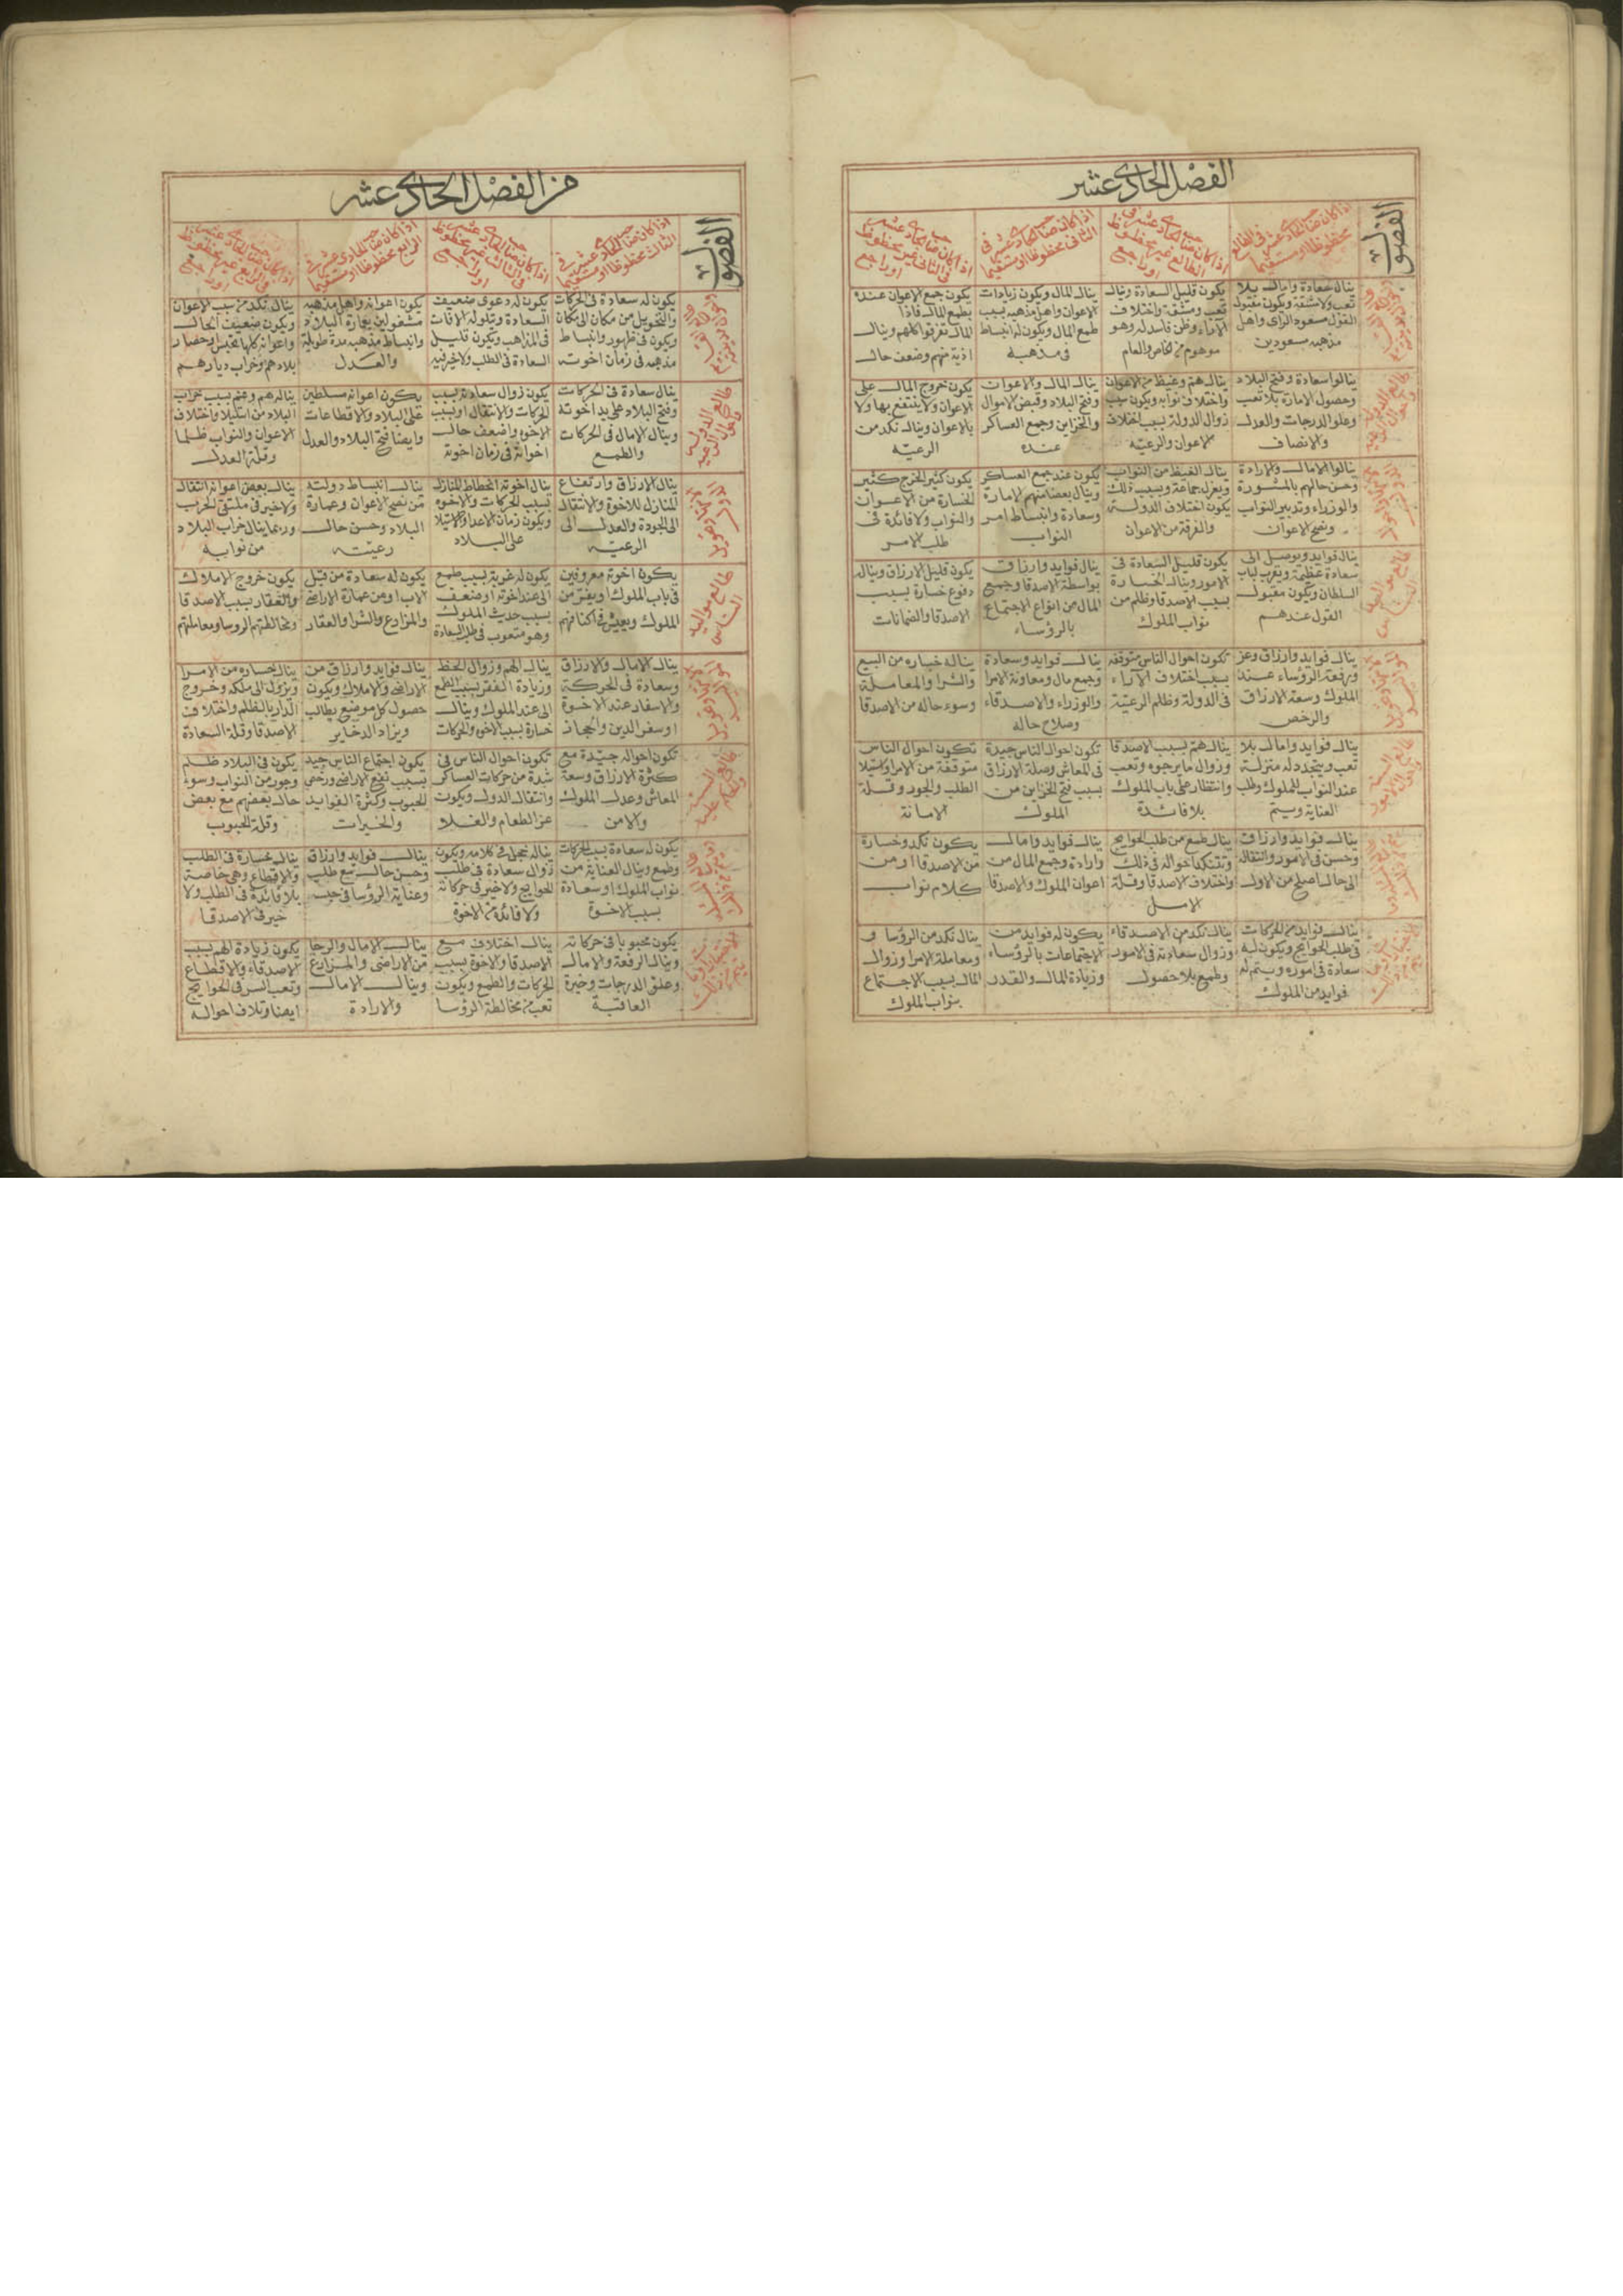 الفصل الحادى عشر
الفصول
اذا كان صاحب الحادى عشر فى الطالع
محظوظا او مستقيما
اذا كان صاحب الحادى عشر فى
الطالع غير محظوظ
او راجع
اذا كان صاحب الحادى عشر فى
الثانى محظوظا او مستقيما
اذا كان صاحب الحادى عشر
فى الثانى غير محظوظ
او راجع
ينال سعادة وامال بلا
تعب ولا مشقة ويكون مقبول
القول مسعود الراى واهل
مذهبه مسعودين
يكون قليل السعادة وينال
تعب ومشقة واختلاف
الاراء وظن فاسد له وهو
موهوم من الخاص والعام
ينال المال ويكون زيادات
الاعوان واهل مذهبه بسبب
طمع المال ويكون له انبساط
فى مذهبه
يكون جمع الاعوان عنده
بطمع المال فاذا
المال تفرقوا كلهم وينال
اذية منهم وضعف حال
طالع الدولة
ينالوا سعادة وفتح البلاد
وحصول الامارة بلا تعب
وعلو الدرجات والعدل
والانصاف
ينال هم وغيظ من الاعوان
واختلاف نوابه ويكون سبب
زوال الدولة بسبب اختلاف
الاعوان والرعية
ينال المال والاعوان
وفتح البلاد وقبض الاموال
والخزاين وجمع العساكر
عنده
يكون خروج المال على
الاعوان ولا ينتفع بها ولا
بالاعوان وينال نكد من
الرعية
ينالوا الامال والارادة
وحسن حالهم بالمشورة
والوزراء وتدبير النواب
ونصح الاعوان
ينال الغيظ من النواب
ويعزل جماعة وبسبب ذلك
يكون اختلاف الدولة
والفرقة من الاعوان
يكون عند جمع العساكر
وينال بعضا منهم الامارة
وسعادة وانبساط امر
النواب
يكون كثير الخرج كثير
الخسارة من الاعوان
والنواب ولا فائدة فى
طلب الامر
طالع مواليد
الناس
ينال فوايد ويوصل الى
سعادة عظيمة ويقرب لباب
السلطان ويكون مقبول
القول عندهم
يكون قليل السعادة فى
الامور وينال الخسارة
بسبب الاصدقا وظلم من
نواب الملوك
ينال فوايد وارزاق
بواسطة الاصدقا وجميع
المال من انواع الاجتماع
بالرؤساء
يكون قليل الارزاق وينال
دفوع خسارة بسبب
الاصدقا والضمانات
ينال فوايد وارزاق وعز
ورفعة الرؤساء عند
الملوك وسعة الارزاق
والرخص
تكون احوال الناس متوقفة
بسبب اختلاف الاراء
فى الدولة وظلم الرعية
ينال فوايد وسعادة
وجمع مال ومعاونة الامرا
والوزراء والاصدقاء
وصلاح حاله
يناله خساره من البيع
والشرا والمعاملة
وسوء حاله من الاصدقا
ينال فوايد وامال بلا
تعب ويتجدد له منزلة
عند النواب للملوك وطلب
العناية ويتم
ينال هم بسبب الاصدقا
وزوال ما يرجوه وتعب
وانتظار على باب الملوك
بلا فائدة
تكون احوال الناس جيدة
فى المعاش وصلة الارزاق
بسبب فتح الخزاين من
الملوك
تكون احوال الناس
متوقفة من الامرا واستيلا
الطلب والجور وقلة
الامانة
ينال فوايد وارزاق
وحسن فى الامور وانتقاله
الى حال اصلح من الاول
ينال طمع من طلب الحوايج
وتتنكد احواله فى ذلك
واختلاف الاصدقا وقلة
الامل
ينال فوايد وامال
وارادة وجمع المال من
اعوان الملوك والاصدقا
يكون نكد وخسارة
من الاصدقا او من
كلام نواب
ينال فوايد من الحركات
فى طلب الحوايج ويكون له
سعادة فى اموره ويتم له
فوايد من الملوك
ينال نكد من الاصدقاء
وزوال سعادته فى الامور
وطمع بلا حصول
يكون له فوايد من
الاجتماعات بالرؤساء
وزيادة المال والقدر
ينال نكد من الرؤسا و
ومعاملة الامرا وزوال
المال بسبب الاجتماع
بنواب الملوك
من الفصل الحادى عشر
الفصول
اذا كان صاحب الحادى عشر فى
الثالث محظوظا او مستقيما
اذا كان صاحب الحادى عشر
فى الثالث غير محظوظ
او راجع
اذا كان صاحب الحادى عشر فى
الرابع محظوظا او مستقيما
اذا كان صاحب الحادى عشر
فى الرابع غير محظوظ
او راجع
يكون له سعادة فى الحركات
والتحويل من مكان الى مكان
ويكون فى ظهور وانبساط
مذهبه فى زمان اخوته
يكون له دعوى ضعيف
السعادة وتلوله الافات
فى المذاهب ويكون قليل
السعادة فى الطلب ولا خير فيه
يكون اعوانه واهل مذهبه
مشغولين بعمارة البلاد
وانبساط مذهبه مدة طويلة
والعدل
ينال نكد من سبب الاعوان
ويكون ضعيف الحال
واعوانه كلها تحبس وحصار
بلادهم وخراب ديارهم
طالع الدولة
ينال سعادة فى الحركات
وفتح البلاد على يد اخوته
وينال الامال فى الحركات
والطمع
يكون زوال سعادته بسبب
الحركات والانتقال او بسبب
الاخوه واضعف حال
اخوانه فى زمان اخوته
يكون اعوانه مسلطين
على البلاد والاقطاعات
وايضا فتح البلاد والعدل
يناله هم وغم بسبب خراب
البلاد من استيلا واختلاف
الاعوان والنواب ظلما
وقلة العدل
ينال الارزاق وارتفاع
المنازل للاخوة والانتقال
الى الجودة والعدل الى
الرعية
ينال اخوته انحطاط المنازل
بسبب الحركات والاخوه
ويكون زمان الاعداء والاستيلا
على البلاد
ينال انبساط دولته
من نصح الاعوان وعمارة
البلاد وحسن حال
رعيته
ينال بعض اعوانه انتقال
ولا خير فى ملتقى الحرب
وربما ينال خراب البلاد
من نوابه
طالع مواليد
الناس
يكون اخوته معروفين
فى باب الملوك ويقرب من
الملوك ويعيش فى اكنافهم
يكون له غربة بسبب طمع
الى عند اخوته او ضعف
بسبب حديث الملوك
وهو متعوب فى طلب السعادة
يكون له سعادة من قبل
الاب او من عمارة الاراضى
والمزارع والشرا والعقار
يكون خروج الاملاك
والعقار بسبب الاصدقا
ومخالطتهم الروسا ومعاملتهم
ينال الامال والارزاق
وسعادة فى الحركة
والاسفار عند الاخوة
او سفر الدين والحجاز
ينال الهم وزوال الحظ
وزيادة الفقر بسبب الطمع
الى عند الملوك وينال
خسارة بسبب الاخوه والحركات
ينال فوايد وارزاق من
الاراضى والاملاك ويكون
حصول كل موضع يطالب
ويزاد الدخاير
ينال خساره من الامرا
ويزول الى ملكه وخروج
الدار بالظلم واختلاف
الاصدقا وقلة السعادة
تكون احواله جيدة مع
كثرة الارزاق وسعة
المعاش وعدل الملوك
والامن
تكون احوال الناس فى
شدة من حركات العساكر
وانتقال الدول ويكون
عز الطعام والغلا
يكون اجتماع الناس جيد
بسبب نفع الاراضى ورخص
الحبوب وكثرة الفوايد
والخيرات
يكون فى البلاد ظلم
وجور من النواب وسوء
حال بعضهم مع بعض
وقلة الحبوب
يكون له سعادة بسبب الحركات
وطمع وينال العناية من
نواب الملوك او سعادة
بسبب الاخوة
يناله خجل فى كلامه ويكون
زوال سعادة فى طلب
الحوايج ولا خير فى حركاته
ولا فائدة من الاخوة
ينال فوايد وارزاق
وحسن حال مع طلب
وعناية الرؤسا فى حب
ينال خسارة فى الطلب
والاقطاع وهى خاصة
بلا فائدة فى الطلب ولا
خير فى الاصدقا
يكون محبوبا فى حركاته
وينال الرفعة والامال
وعلو الدرجات وخيرة
العاقبة
ينال اختلاف مع
الاصدقا والاخوة بسبب
الحركات والطمع ويكون
تعب من مخالطة الرؤسا
ينال الامال والرجا
من الاراضى والمزارع
وينال الامال
والارادة
يكون زيادة الهم بسبب
الاصدقاء والاقطاع
وتعب السر فى الحوايج
ايضا وتلاف احواله